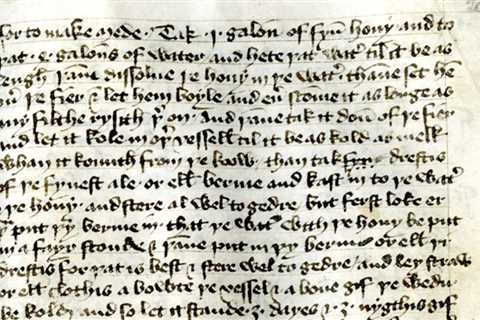 for to make mede · Tak · j · galon̄ of fyn̄ hony and to
þat · 4 · galon̄s of water and hete þat wat' til it be as
lengh þan̄e dissolue þe hony in þe wat' · thane set hē
ou' þe fier & let hem boyle and eu' scōme it as longe as
any filthe rysith þ' on · and þane tak it don̄ of þe fier
and let it kole in oþ' vessell til it be as kold as melk
whan it komith from þe koow · than tak drestis
of þe fynest ale · or ell' berme and kast in to þe wat'
& þe hony · and stere al wel to gedre but ferst loke er
þu put þy berme in · that þe wat' with þe hony be put
in a fayr stonde & þane put in þy berme or ell' þi
drestis for þat is best & stere wel to gedre / and ley straw
or ell' clothis a bowte þe vessel & a boue gif þe wedir
be kolde and so let it stande · 3 · dayes & · 3 · nygthis gif